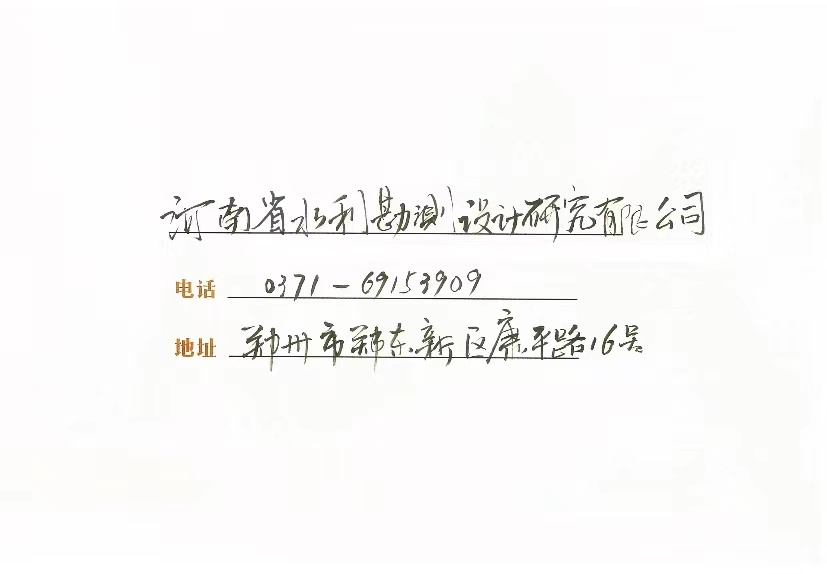 河南省水利勘测设计研究有限公司
电话 0371-69153909
地址 郑州市郑东新区康平路16号